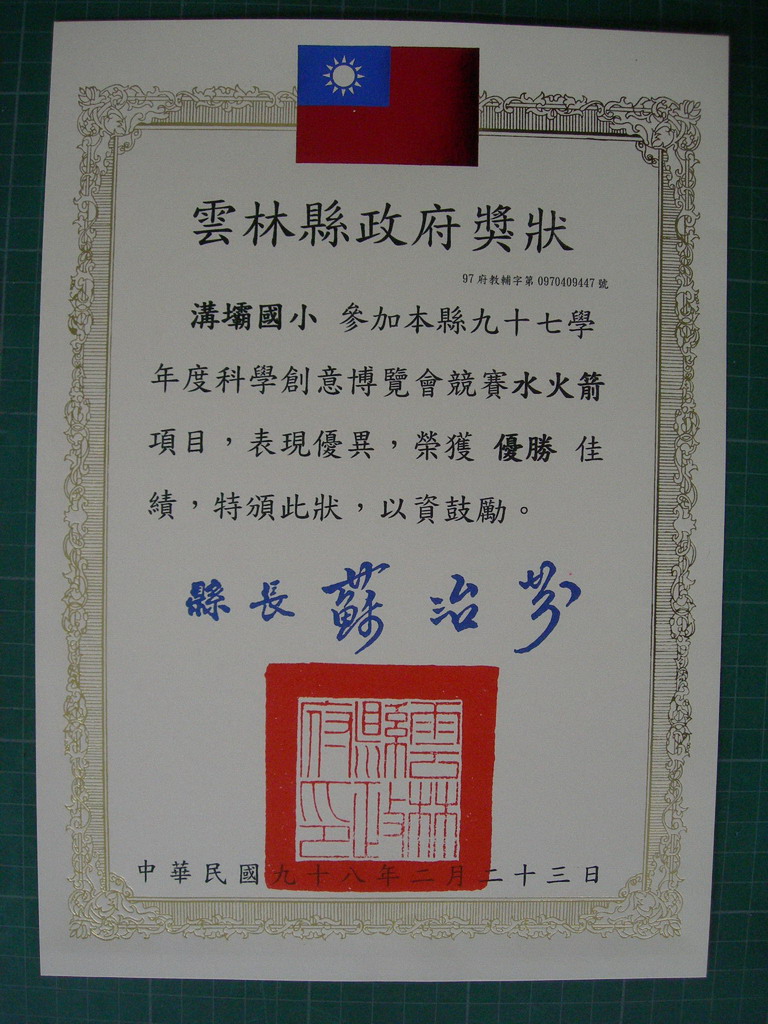 雲林縣政府獎狀
97府教輔字第0970409447號
溝壩國小 參加本縣九十七學
年度科學創意博覽會競賽水火箭
項目，表現優異，榮獲 優勝 佳
績，特頒此狀，以資鼓勵。
縣長 蘇治芬
雲林縣政府印
中華民國九十八年二月二十三日